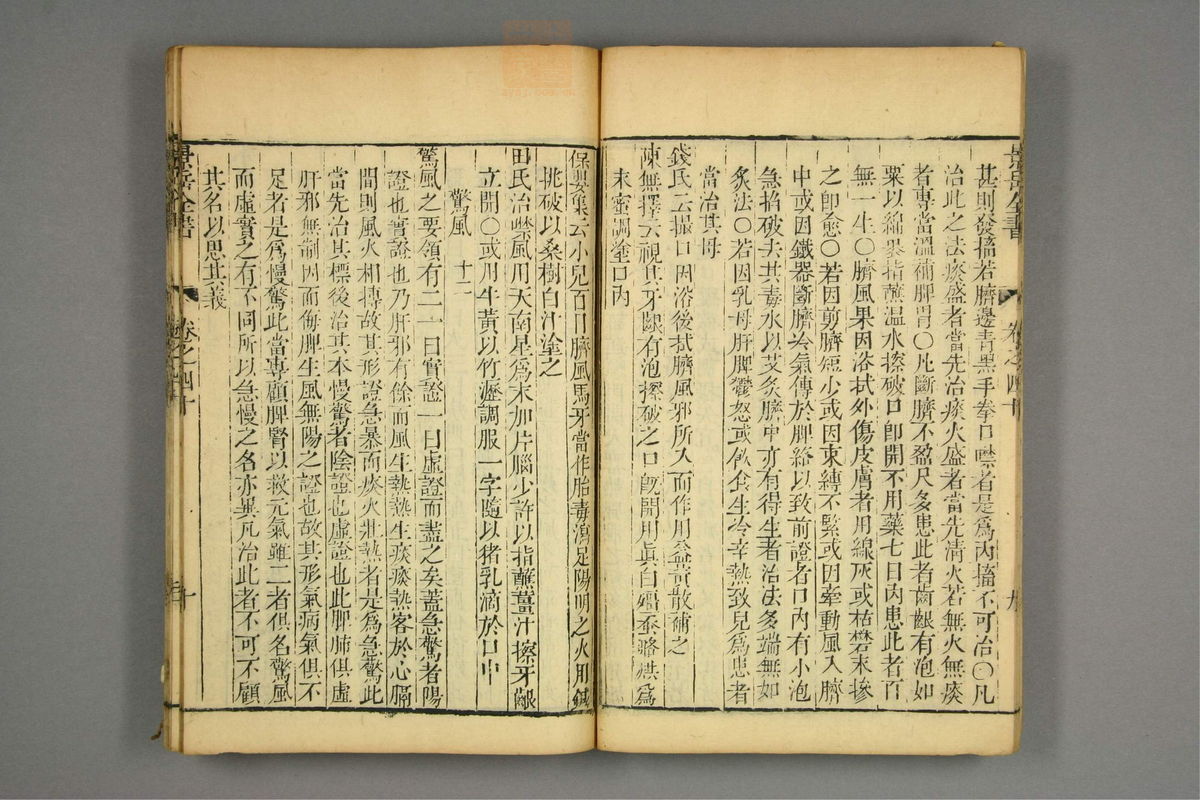 甚則發搐若臍邊青黑手拳口噤者是爲內搐不可治〇凡
治此之法痰盛者當先治痰火盛者當先清火若無火無痰
者專當溫補脾胃〇凡斷臍不盈尺多患此者齒齦有泡如
粟以綿裹指蘸温水擦破口卽開不用藥七日內患此者百
無一生〇臍風果因浴拭外傷皮膚者用線灰或枯礬末摻
之卽愈〇若因剪臍短少或因束縛不緊或因牽動風入臍
中或因鐵器斷臍冷氣傳於脾絡以致前證者口內有小泡
急掐破去其毒水以艾灸臍中亦有得生者治法多端無如
灸法〇若因乳母肝脾鬱怒或飲食生冷辛熱致兒爲患者
當治其母
錢氏云撮口因浴後拭臍風邪所入而作用益黃散補之
陳無擇云視其牙齦有泡擦破之口既開用眞白殭蚕略烘爲
末蜜調塗口內
景岳全書
卷之四十
九
保嬰集云小兒百日臍風馬牙當作胎毒瀉足陽明之火用鍼
挑破以桑樹白汁塗之
田氏治噤風用天南星爲末加片腦少許以指蘸薑汁擦牙齦
立開〇或用牛黃以竹瀝調服一字隨以猪乳滴於口中
驚風 十二
驚風之要領有二一曰實證一曰虛證而盡之矣蓋急驚者陽
證也實證也乃肝邪有餘而風生熱熱生痰痰熱客於心膈
間則風火相搏故其形證急暴而痰火壯熱者是爲急驚此
當先治其標後治其本慢驚者陰證也虛證也此脾肺俱虛
肝邪無制因而侮脾生風無陽之證也故其形氣病氣俱不
足者是爲慢驚此當專顧脾腎以救元氣雖二者俱名驚風
而虛實之有不同所以急慢之名亦異凡治此者不可不顧
其名以思其義
景岳全書
卷之四十
十